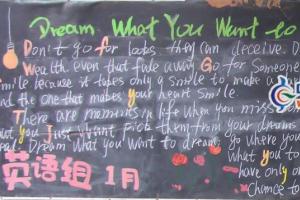 Dream What You Want to
Don't go for looks, they can deceive. D
Wealth, even that fade away. Go for Someone
Smile because it takes only a smile to make a
nd the one that makes your heart Smile
There are moments in life when you miss som
ut you Just want pick them from your dreams
eal Dream what you want to dream. Go where
What you
to be
have only o
Chance to
英语组 1月